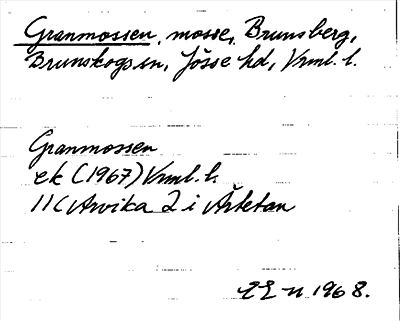 Granmossen, mosse, Brunsberg,
Brunskogs sn, Jösse hd, Vrml. l.
Granmossen
ek (1967) Vrml. l.
11C Arvika 2 i Årtetan
1968.